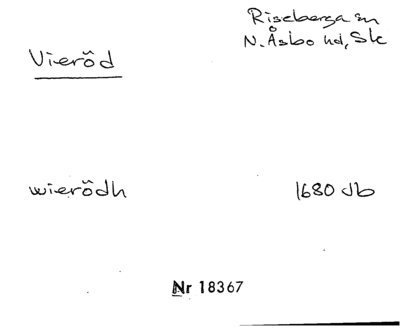 Riseberga sn
Vieröd N. Åsbo hd, Sk
wierödh 1680 Jb
Nr 18367